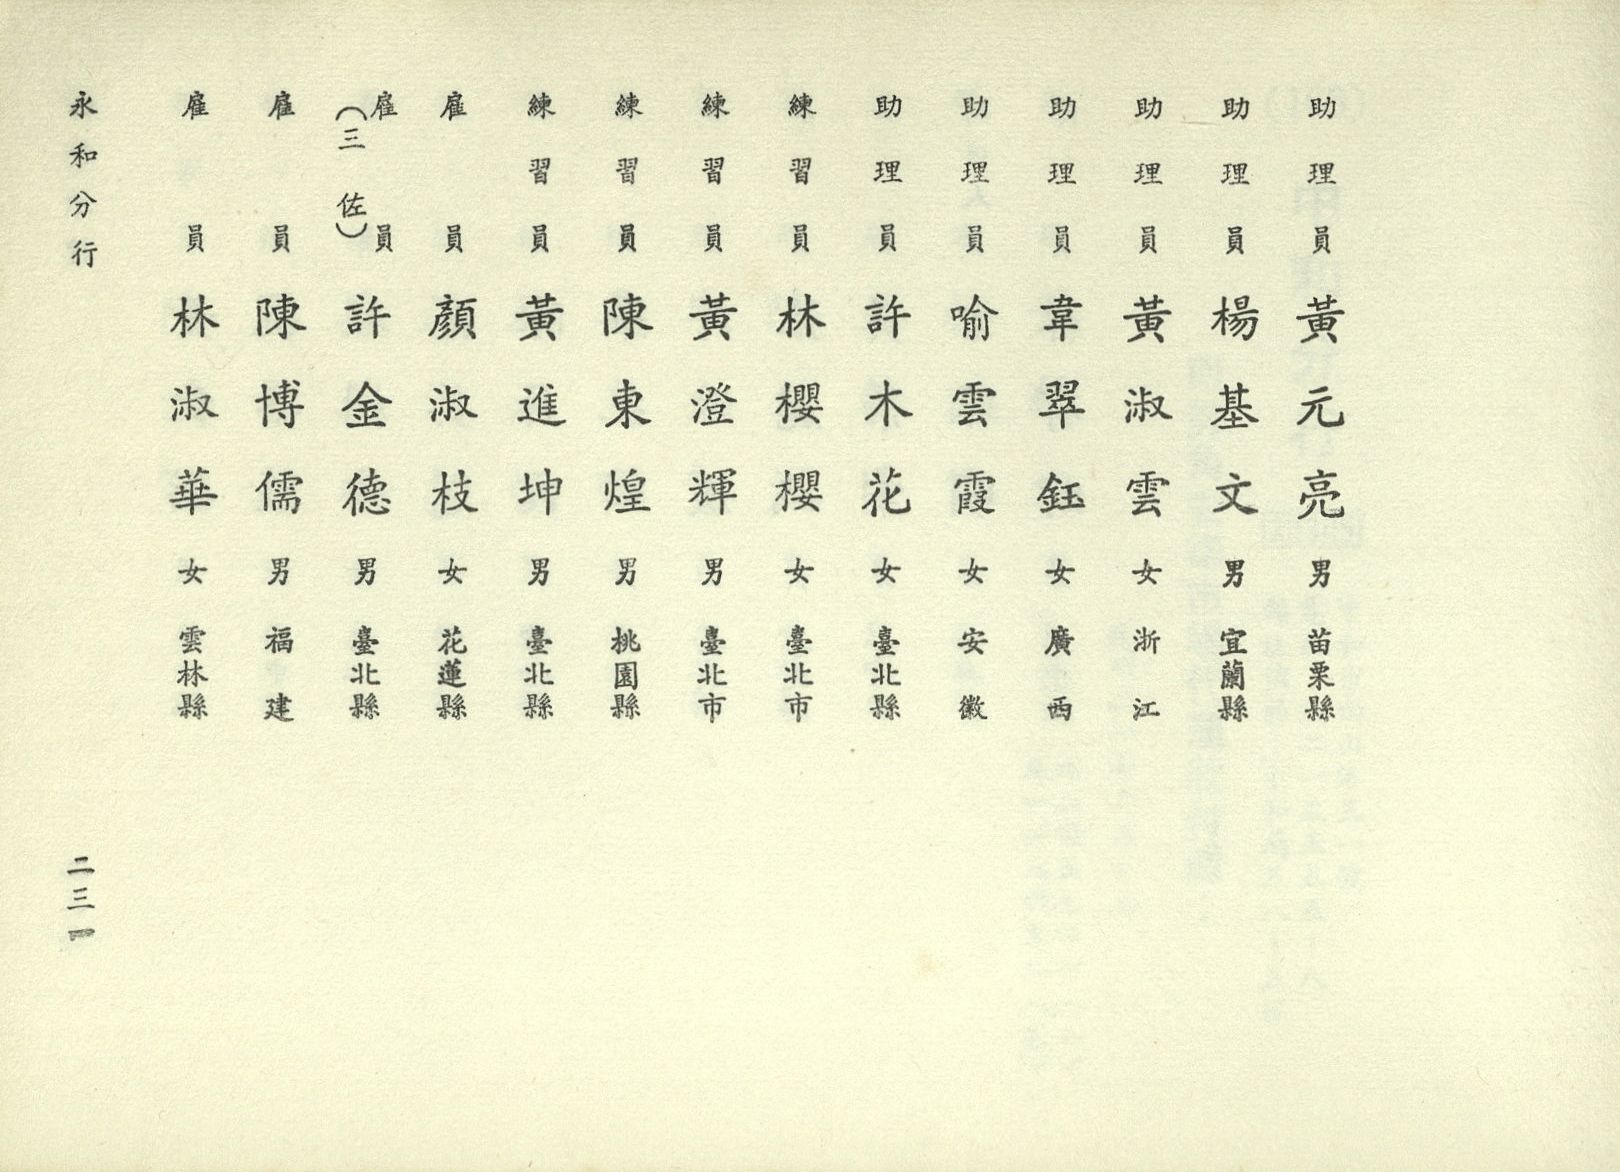 助理員 黃元亮 男 苗栗縣
助理員 楊基文 男 宜蘭縣
助理員 黃淑雲 女 浙江
助理員 韋翠鈺 女 廣西
助理員 喻雲霞 女 安徽
助理員 許木花 女 臺北縣
練習員 林櫻櫻 女 臺北市
練習員 黃澄輝 男 臺北市
練習員 陳東煌 男 桃園縣
練習員 黃進坤 男 臺北縣
雇員 顏淑枝 女 花蓮縣
雇員(三佐) 許金德 男 臺北縣
雇員 陳博儒 男 福建
雇員 林淑華 女 雲林縣
永和分行 二三一